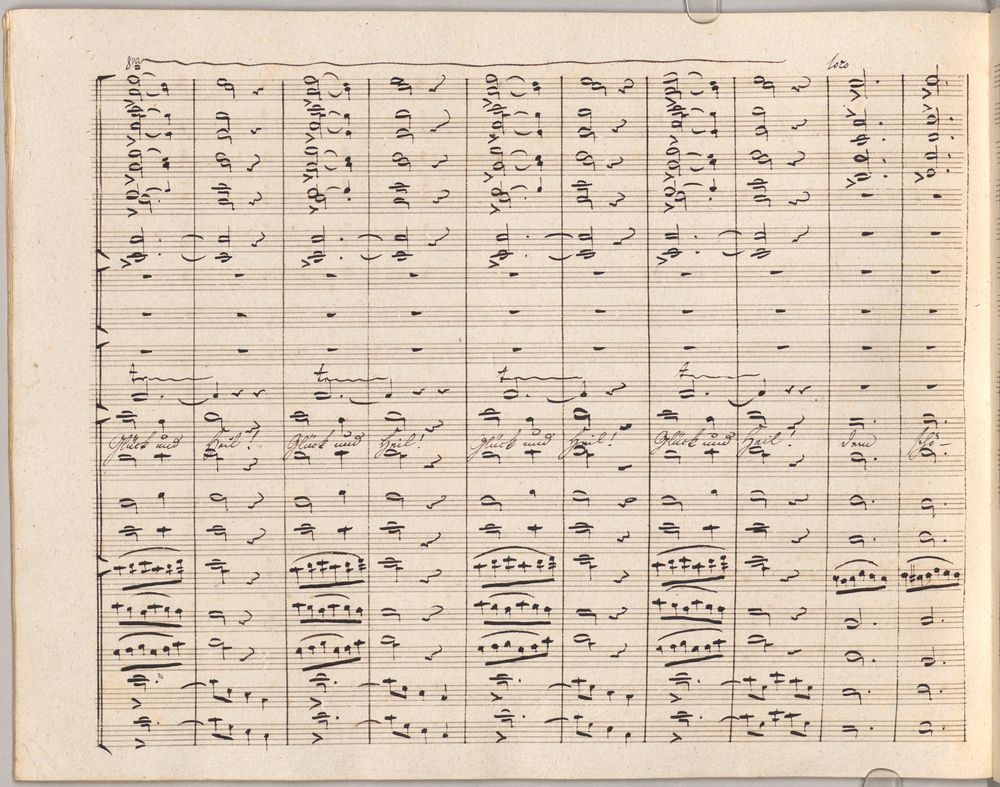 8va loco
Glück und Heil! Glück und Heil! Glück und Heil! Glück und Heil! Dem Schö-